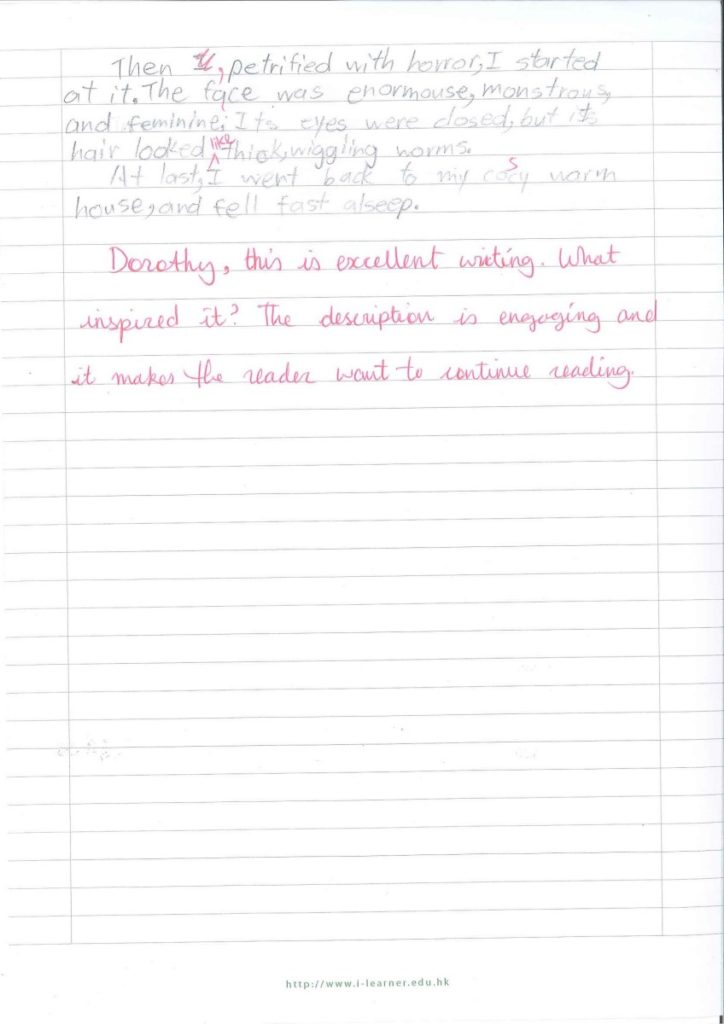 Then I, petrified with horror, I started
at it. The face was enormouse, monstrous,
and feminine; Its eyes were closed, but its
hair looked like thick, wiggling worms.
At last, I went back to my cosy warm
house, and fell fast alseep.
Dorothy, this is excellent writing. What
inspired it? The description is engaging and
it makes the reader want to continue reading.
http://www.i-learner.edu.hk